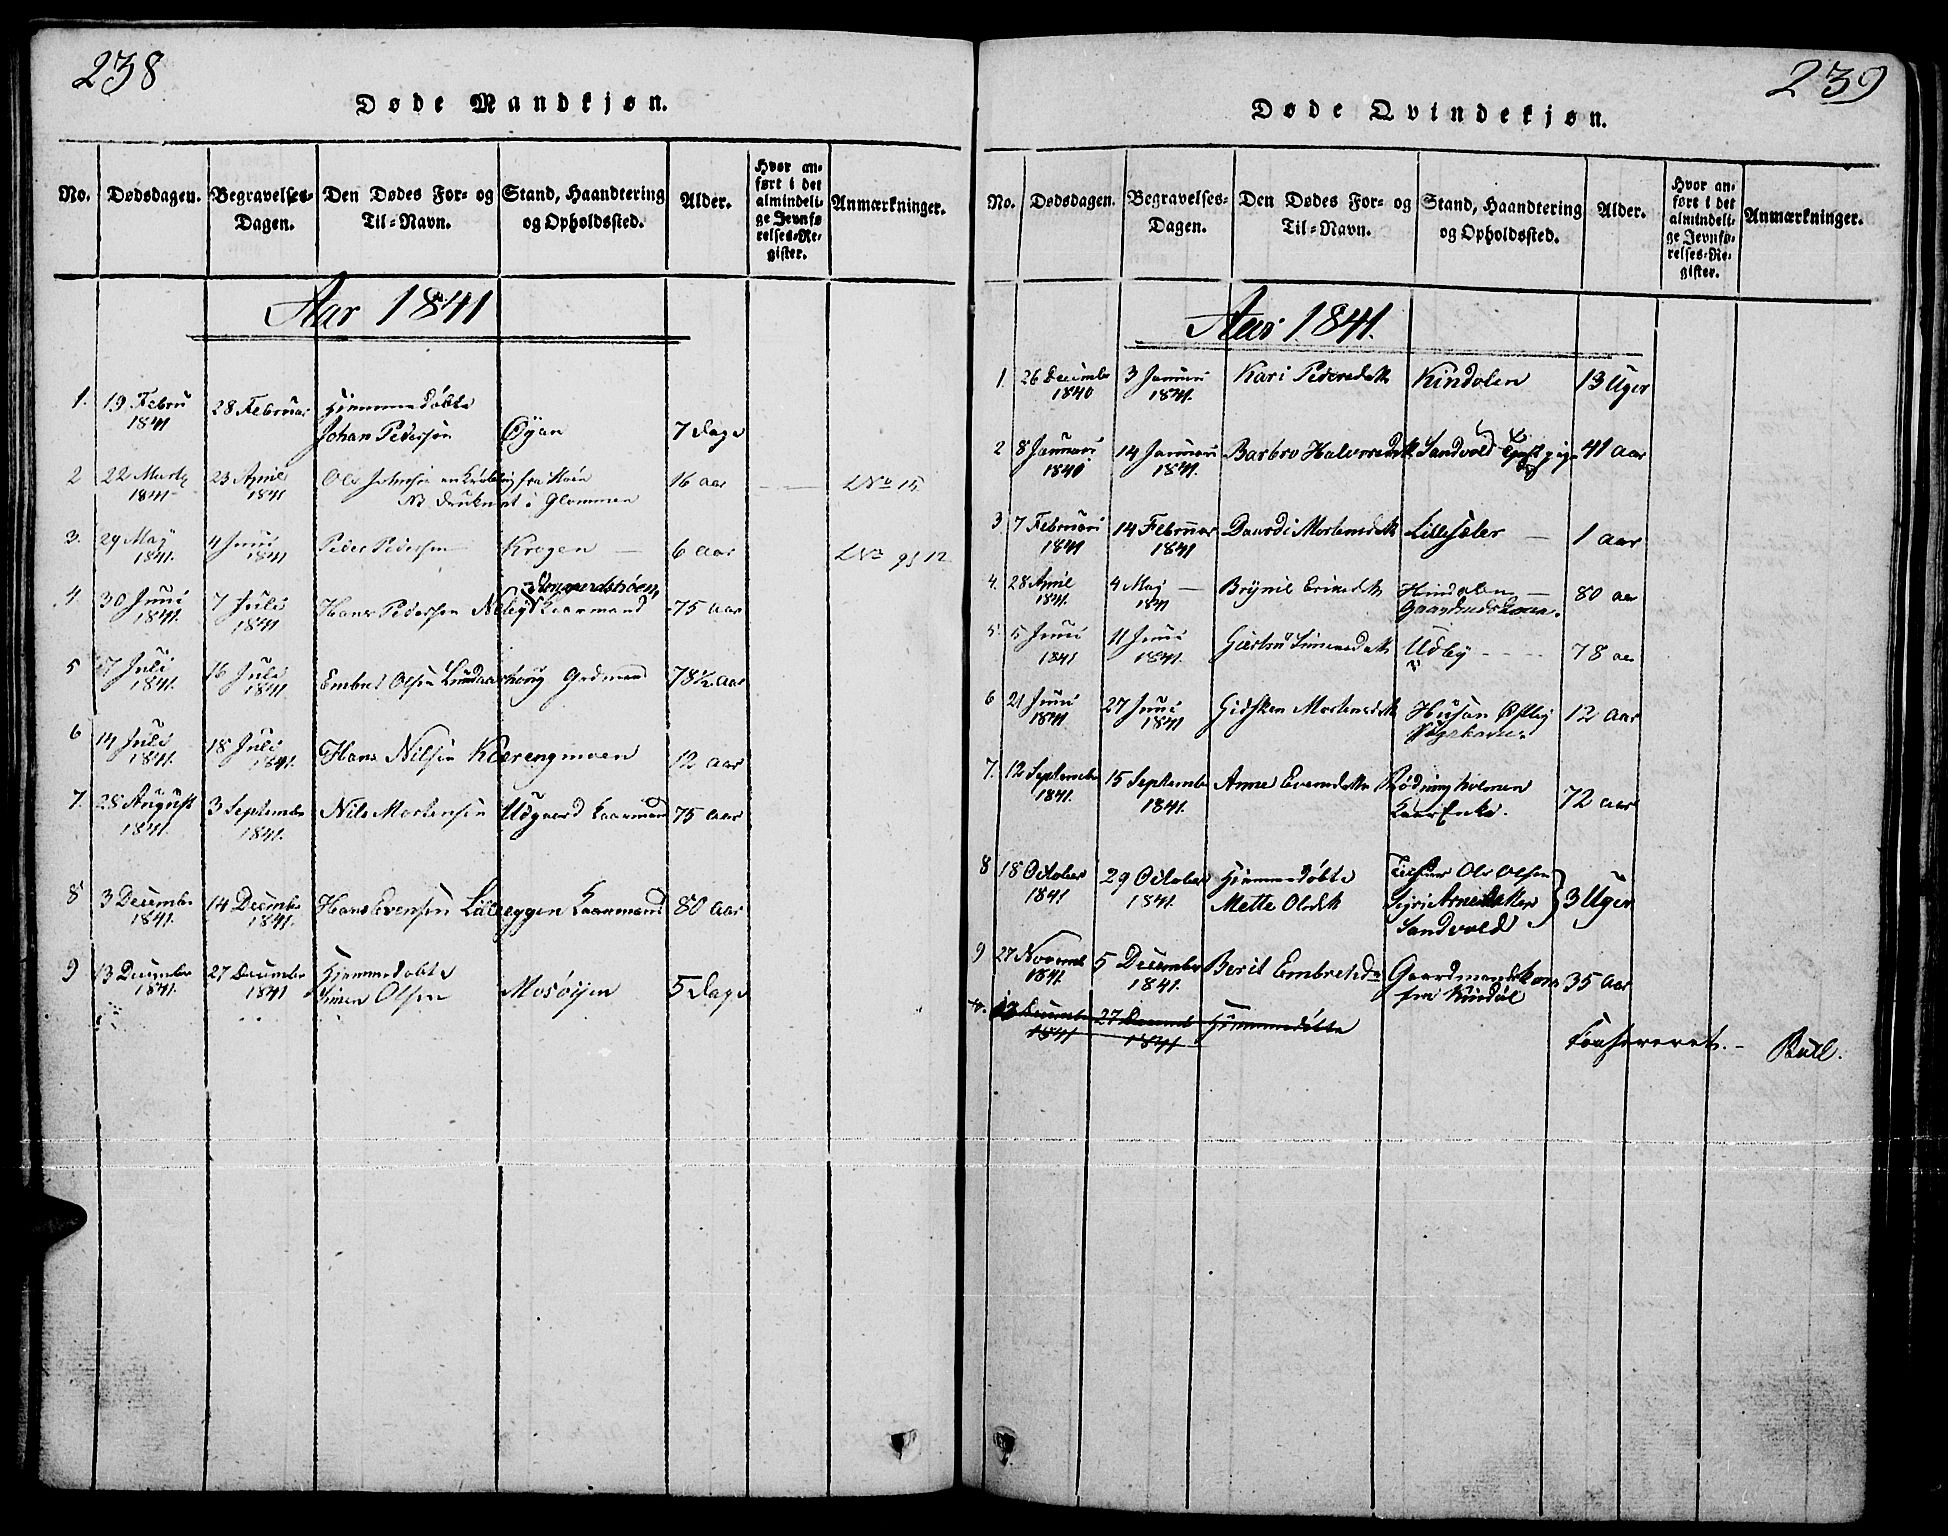 238
Døde Mandkjøn.
No. Dødsdagen. Begravelses-Dagen. Den Dødes For- og Til-Navn. Stand, Haandtering og Opholdssted. Alder. Hvor anført i det almindelige Jevnførelses-Register. Anmærkninger.
Aar 1841
1. 19 Febru 1841 28 Februar Hjemmedøbte Johan Pedersen Øyen 7 Dage
2 22 Marts 1841 23 April 1841 Ole Johnsen en fra NB druknet i Glommen 16 aar No 15
3. 29 May 1841. 4 Juni 1841 Peder Pedersen Krogen — 6 aar No
4. 30 Juni 1841. 7 Juli 1841 Hans Pedersen Nebye Kaarmand 75 aar
5 7 Juli 1841. 16 Juli 1841 Embret Olsen Lundaarhoug Grdmand 78½ aar
6 14 Juli 1841. 18 Juli 1841. Hans Nilsen Kværengmoen 12 aar
7. 28 August 1841. 3 Septembr 1841. Nils Mortensen Udgaard Kaarmand 75 aar
8 3 Decembr 1841. 14 Decembr 1841. Hans Evensen Lilleeggen Kaarmand 80 aar
9 13 Decembr 1841. 27 Decembr 1841 Hjemmedøbte Simen Olsen Mosøyen 5 Dage
239
Døde Qvindekjøn.
No. Dødsdagen. Begravelses-Dagen. Den Dødes For- og Til-Navn. Stand, Haandtering og Opholdssted. Alder. Hvor anført i det almindelige Jevnførelses-Register. Anmærkninger.
Aar 1841.
1. 26 Decembr 1840 3 Januari 1841. Kari Pedersdtr Kindølen 13 Uger
2 8 Januari 1841 14 Januari 1841. Barbro Halvorsdtr Sandvold 41 aar
3 7 Februari 1841 14 Februar 1841 Duurdi Mortensdtr Lilleseter — 1 aar
4. 28 April 1841. 4 May — 1841 Brynil Erixsdtr Hindølen — Gaardmdskone. 80 aar
5 5 Juni 1841 11 Juni 1841. Giertru Simensdtr Udby 78 aar
6 21 Juni 1841. 27 Juni 1841 Gidsken Mortensdtr Husan 12 aar
7. 12 Septembr 1841. 15 Septembr 1841. Anne Evensdatter Rødningholmen KaarEnke. 72 aar
8 18 October 1841 29 October 1841. Hjemmedøbte Mette Olsdtr Ole Olsen Sigri Arnesdatter Sandvold 3 Uger
9 27 Novembr 1841. 5 Decembr 1841. Berit Embretsdtr Gaardmandskone fra Kindøl 35 aar
13 Decembr 1841 27 Decembr 1841 Hjemmedøbte
Confereret. — Bull.